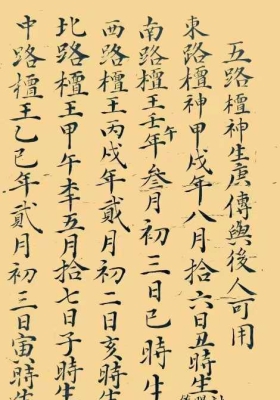 五路檀神生庚傳與後人可用
東路檀神甲戌年八月拾六日丑時生
南路檀王壬午年叁月初三日巳時生
西路檀王丙戌年貳月初二日亥時生
北路檀王甲午年五月拾七日子時生
中路檀王乙巳年貳月初三日寅時生